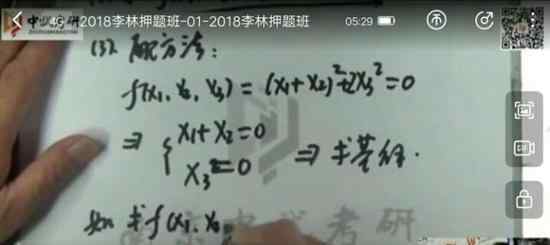 4G 2018李林押题班-01-2018李林押题班 05:29
(3) 配方法:
f(x₁, x₂, x₃) = (x₁+x₂)²+2x₃² = 0
⇒ { x₁+x₂=0
x₃=0 ⇒ 求基础解.
如 求f(x₁, x₂
考研
GIF